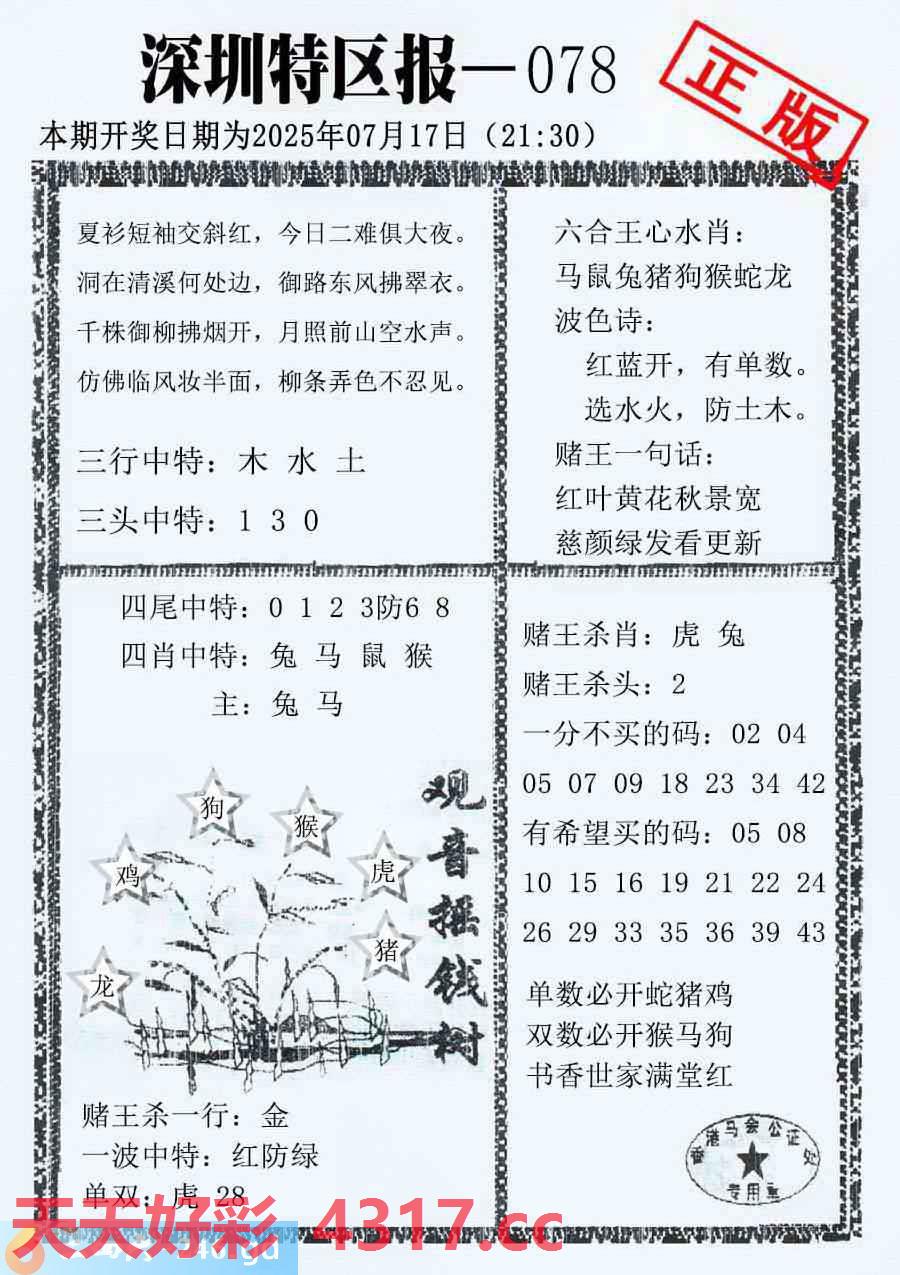 深圳特区报—078
正版
本期开奖日期为2025年07月17日（21:30）
夏衫短袖交斜红，今日二难俱大夜。
洞在清溪何处边，御路东风拂翠衣。
千株御柳拂烟开，月照前山空水声。
仿佛临风妆半面，柳条弄色不忍见。
三行中特：木 水 土
三头中特：1 3 0
六合王心水肖：
马鼠兔猪狗猴蛇龙
波色诗：
红蓝开，有单数。
选水火，防土木。
赌王一句话：
红叶黄花秋景宽
慈颜绿发看更新
四尾中特：0 1 2 3防6 8
四肖中特：兔 马 鼠 猴
主：兔 马
狗
猴
鸡
虎
猪
龙
观音摇钱树
赌王杀一行：金
一波中特：红防绿
单双：虎 28
赌王杀肖：虎 兔
赌王杀头：2
一分不买的码：02 04
05 07 09 18 23 34 42
有希望买的码：05 08
10 15 16 19 21 22 24
26 29 33 35 36 39 43
单数必开蛇猪鸡
双数必开猴马狗
书香世家满堂红
香港马会公证处
专用章
天天好彩 4317.cc